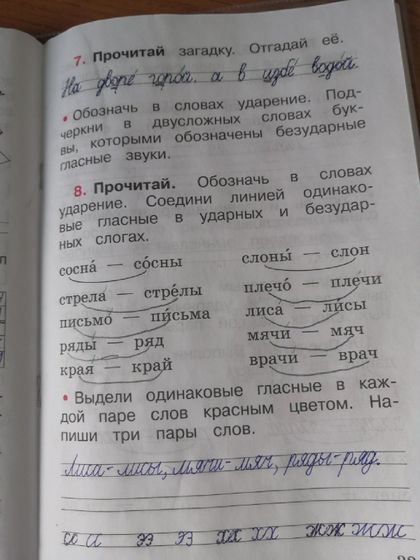 7. Прочитай загадку. Отгадай её.
На дворе́ горо́й, а в избе́ водо́й.
• Обозначь в словах ударение. Под-
черкни в двусложных словах бук-
вы, которыми обозначены безударные
гласные звуки.
8. Прочитай. Обозначь в словах
ударение. Соедини линией одинако-
вые гласные в ударных и безудар-
ных слогах.
сосна́ — со́сны слоны́ — слон
стрела́ — стре́лы плечо́ — пле́чи
письмо́ — пи́сьма лиса́ — ли́сы
ряды́ — ряд мячи́ — мяч
края́ — край врачи́ — врач
• Выдели одинаковые гласные в каж-
дой паре слов красным цветом. На-
пиши три пары слов.
Лиса-лисы, мячи-мяч, ряды-ряд.